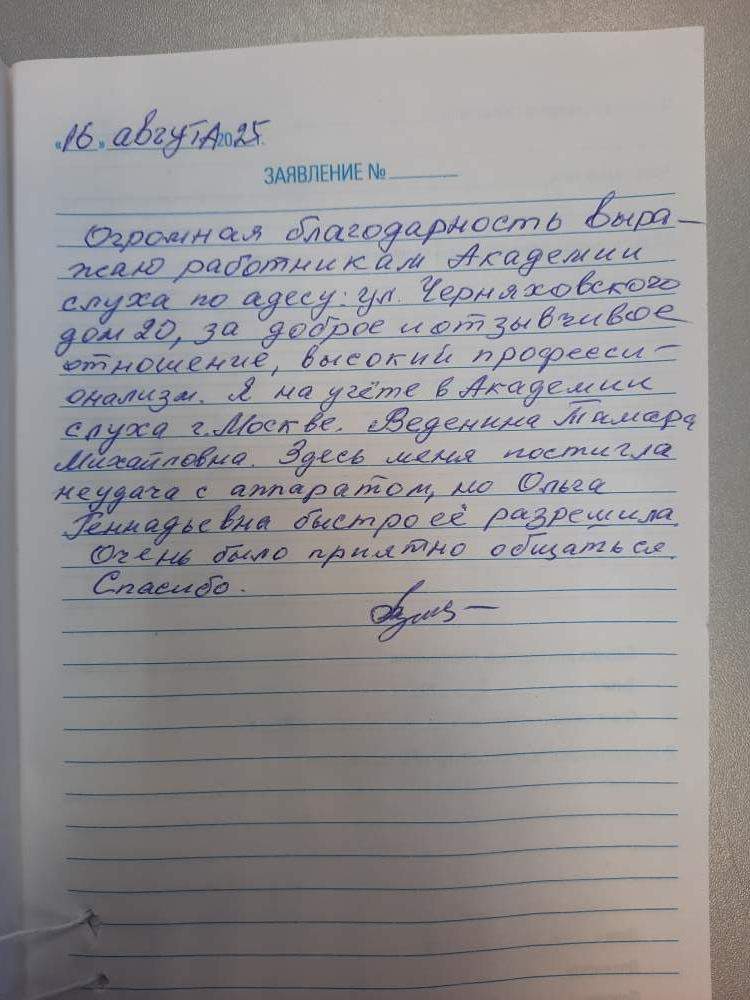 «16» августа 2025г.
ЗАЯВЛЕНИЕ №
Огромная благодарность выра-
жаю работникам Академии
слуха по адесу: ул. Черняховского
дом 20, за доброе и отзывчивое
отношение, высокий професси-
онализм. Я на учёте в Академии
слуха г. Москве. Веденина Тамара
Михайловна. Здесь меня постигла
неудача с аппаратом, но Ольга
Геннадьевна быстро её разремила.
Очень было приятно общаться.
Спасибо.